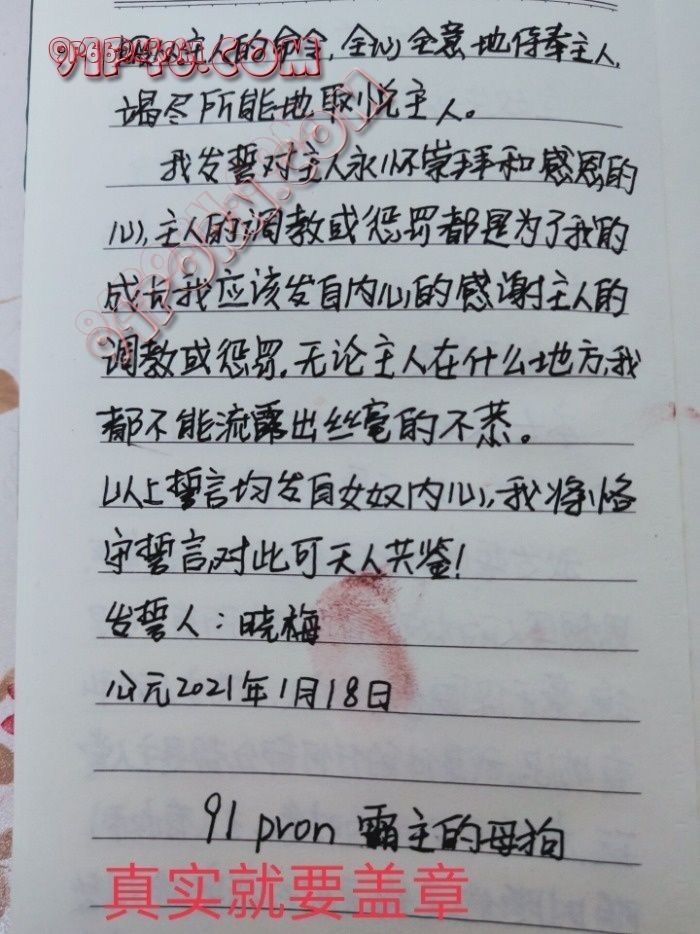 服从主人的命令,全心全意地侍奉主人,
91P46.COM
竭尽所能地取悦主人。
我发誓对主人永怀崇拜和感恩的
心,主人的调教或惩罚都是为了我的
成长我应该发自内心的感谢主人的
调教或惩罚,无论主人在什么地方,我
都不能流露出丝毫的不恭。
以上誓言均发自女奴内心,我将恪
守誓言,对此可天人共鉴!
发誓人:晓梅
公元2021年1月18日
91 pron 霸主的母狗
真实就要盖章